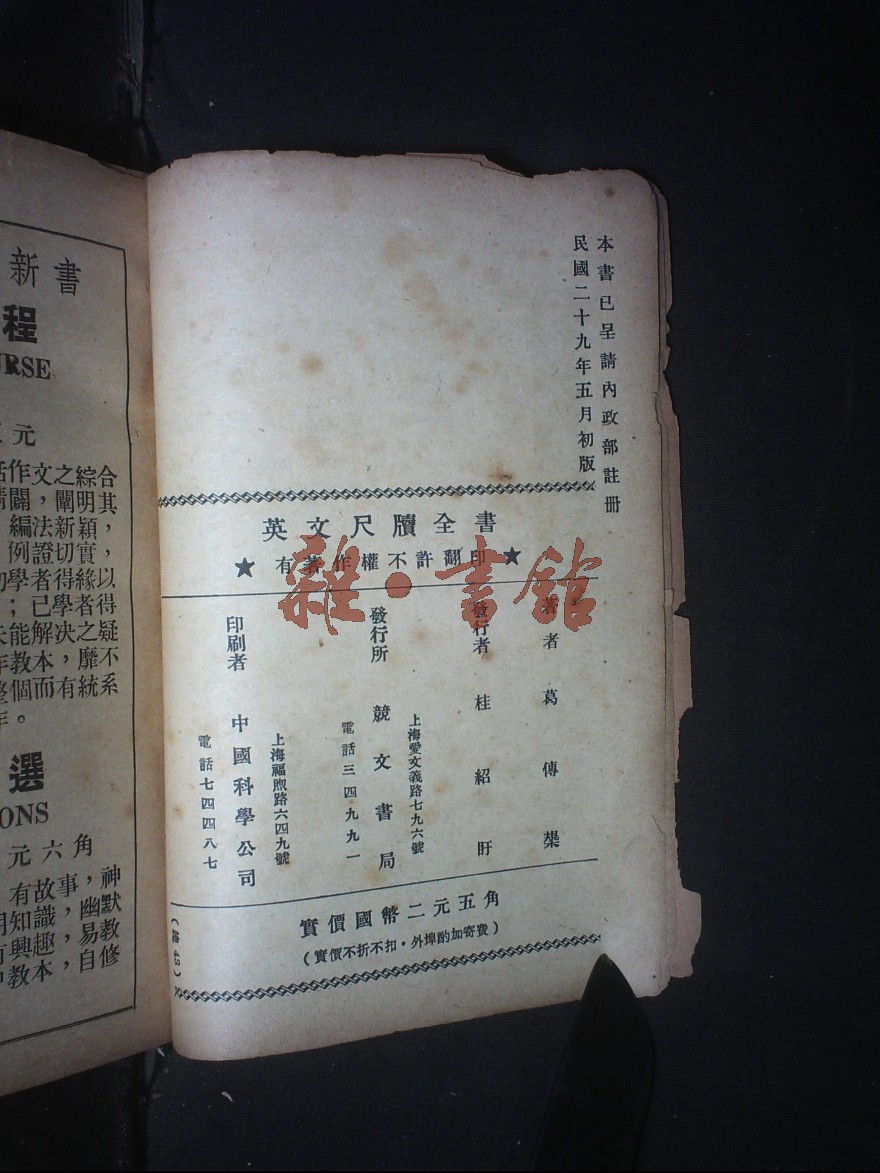 本書已呈請內政部註冊
民國二十九年五月初版
英文尺牘全書
★有著作權不許翻印★
著者 葛傳槼
發行者 桂紹盱
上海愛文義路七九六號
發行所 競文書局
電話三四九九一
上海福煦路六四九號
印刷者 中國科學公司
電話七四四八七
實價國幣二元五角
(實價不折不扣·外埠酌加寄費)
雜·書館
新書
程
URSE
元
作文之綜合
闢,闡明其
編法新穎,
例證切實,
學者得緣以
;已學者得
能解決之疑
教本,靡不
個而有統系
。
選
ONS
元六角
有故事,神
知識,幽默
興趣,易教
教本,自修